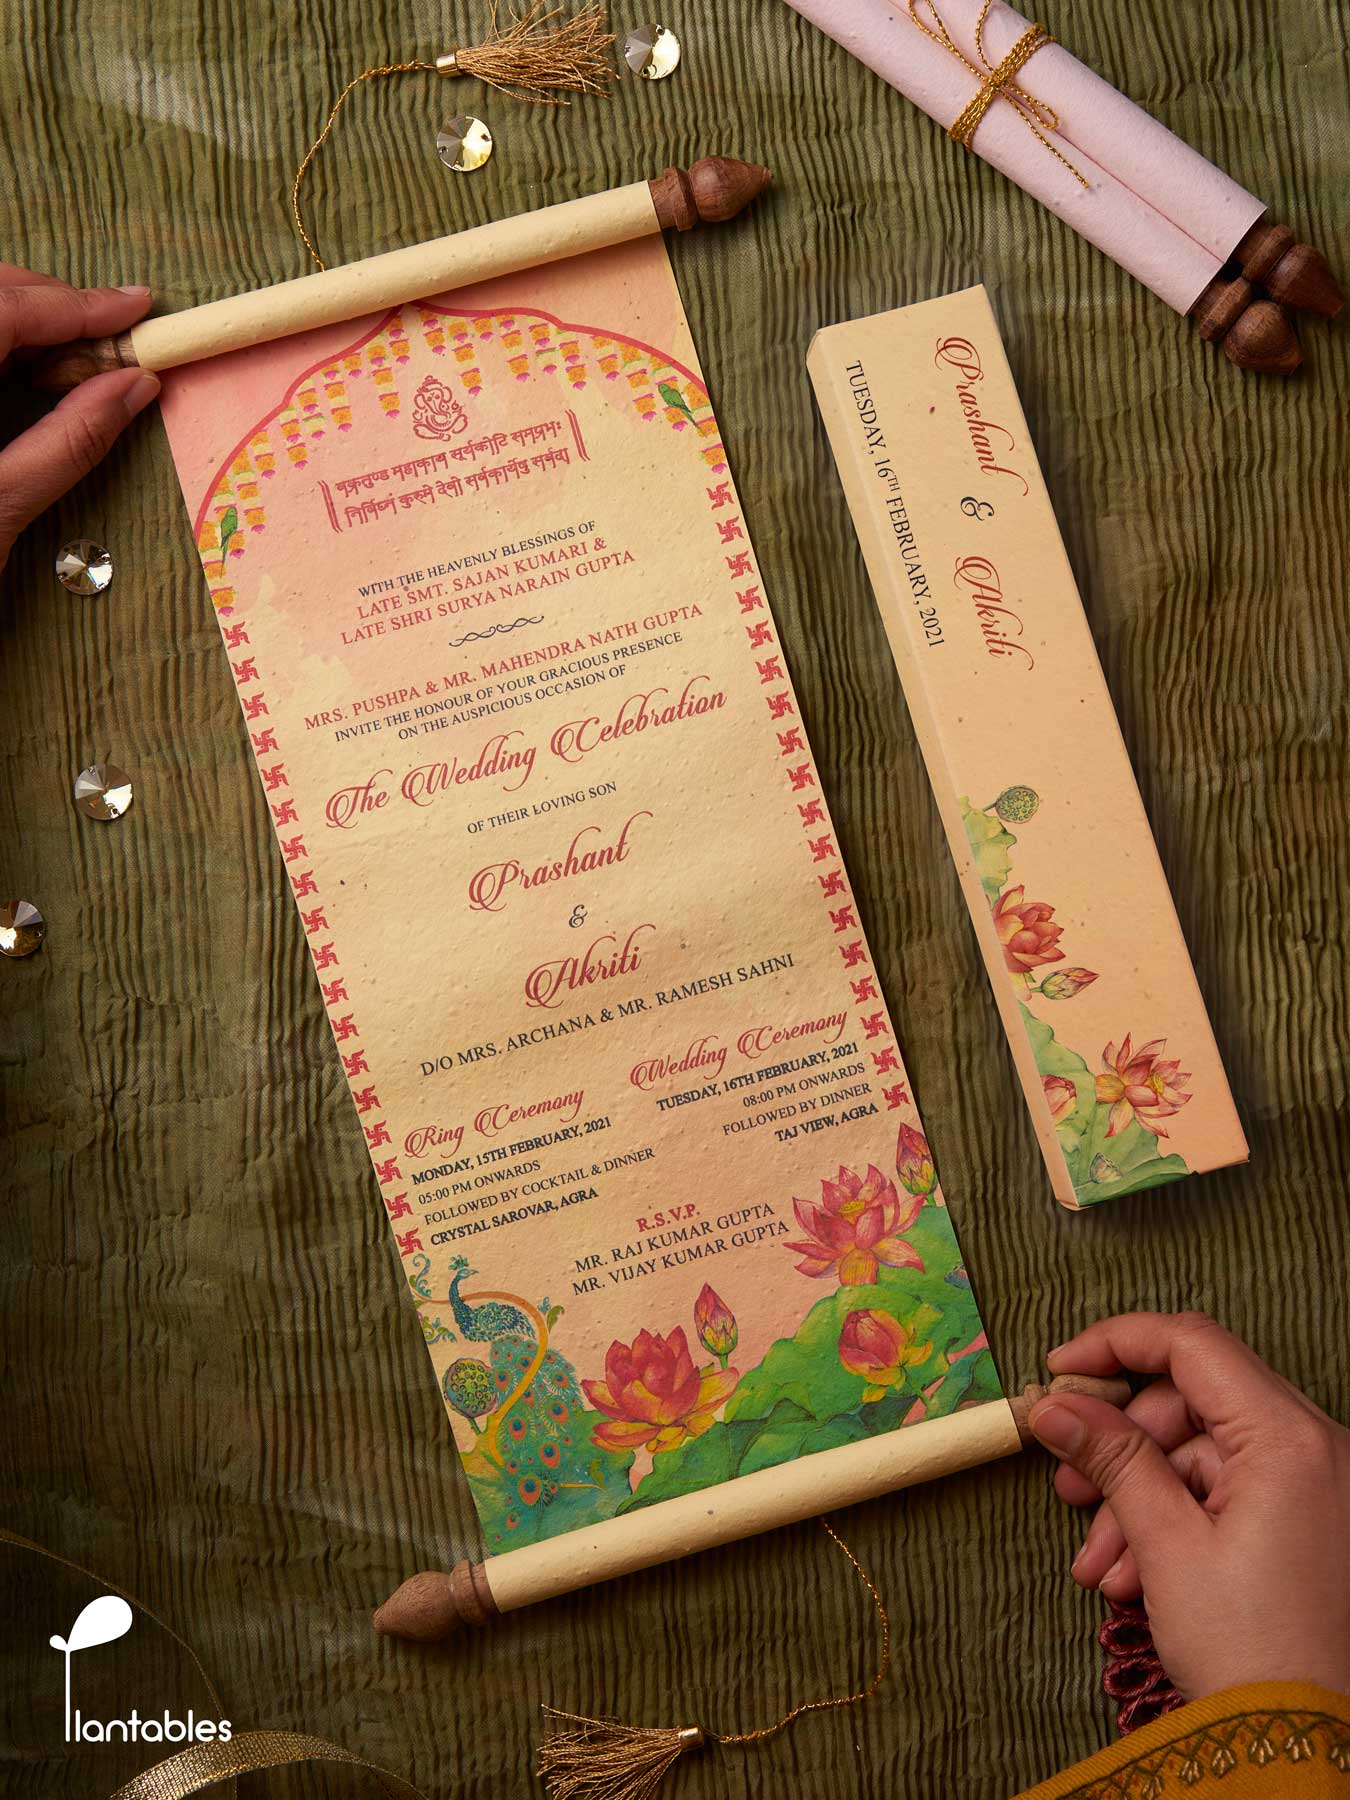 ॥ वक्रतुण्ड महाकाय सर्यकोटि समप्रभः
निर्विघ्नं कुरुमे देवो सर्वकार्येषु सर्वदा ॥
WITH THE HEAVENLY BLESSINGS OF
LATE SMT. SAJAN KUMARI &
LATE SHRI SURYA NARAIN GUPTA
MRS. PUSHPA & MR. MAHENDRA NATH GUPTA
INVITE THE HONOUR OF YOUR GRACIOUS PRESENCE
ON THE AUSPICIOUS OCCASION OF
The Wedding Celebration
OF THEIR LOVING SON
Prashant
&
Akriti
D/O MRS. ARCHANA & MR. RAMESH SAHNI
Ring Ceremony
MONDAY, 15TH FEBRUARY, 2021
05:00 PM ONWARDS
FOLLOWED BY COCKTAIL & DINNER
CRYSTAL SAROVAR, AGRA
Wedding Ceremony
TUESDAY, 16TH FEBRUARY, 2021
08:00 PM ONWARDS
FOLLOWED BY DINNER
TAJ VIEW, AGRA
R.S.V.P.
MR. RAJ KUMAR GUPTA
MR. VIJAY KUMAR GUPTA
Prashant & Akriti
TUESDAY, 16TH FEBRUARY, 2021
Plantables